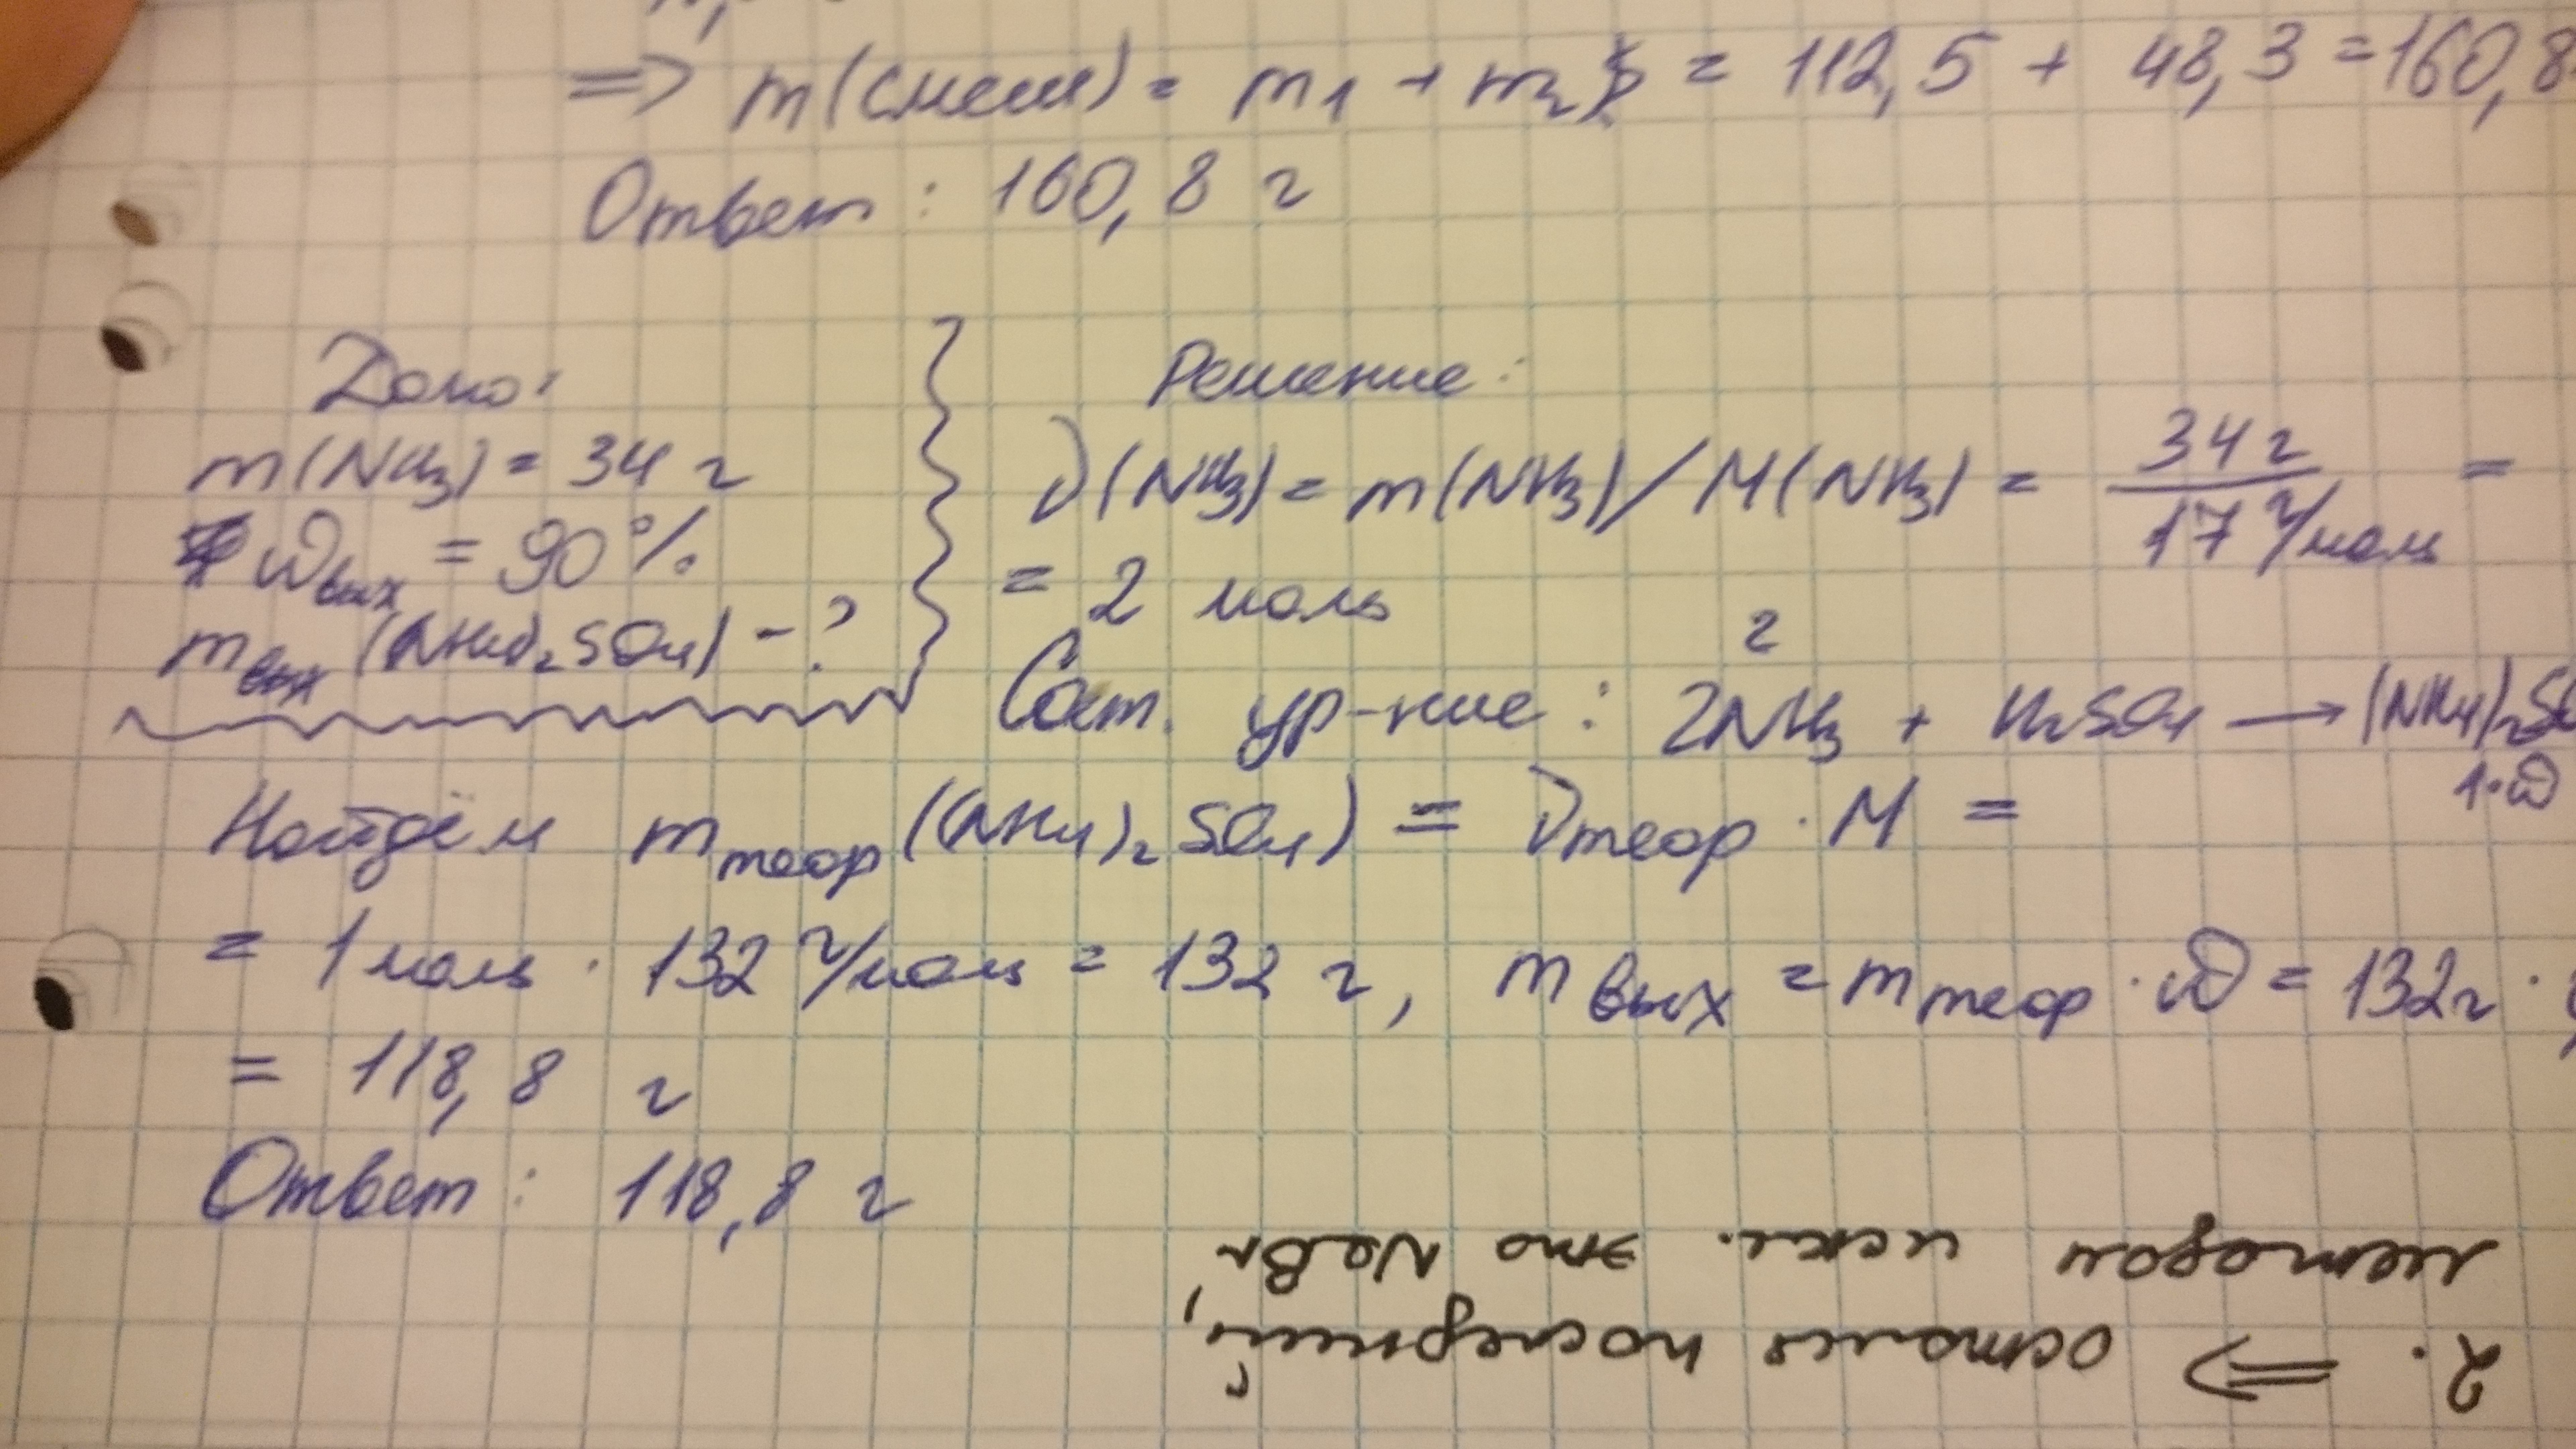 => m(смеси) = m1 + m2 = 112,5 + 48,3 = 160,8
Ответ: 160,8 г
Дано:
m(NH3) = 34 г
ωвых = 90%
mвых((NH4)2SO4) - ?
Решение:
ν(NH3) = m(NH3)/M(NH3) = 34 г / 17 г/моль =
= 2 моль
2
Сост. ур-ние: 2NH3 + H2SO4 → (NH4)2SO
1·ω
Найдём mтеор((NH4)2SO4) = νтеор · M =
= 1 моль · 132 г/моль = 132 г, mвых = mтеор · ω = 132г ·
= 118,8 г
Ответ: 118,8 г
2. => остался последний,
методом искл. это NaBr